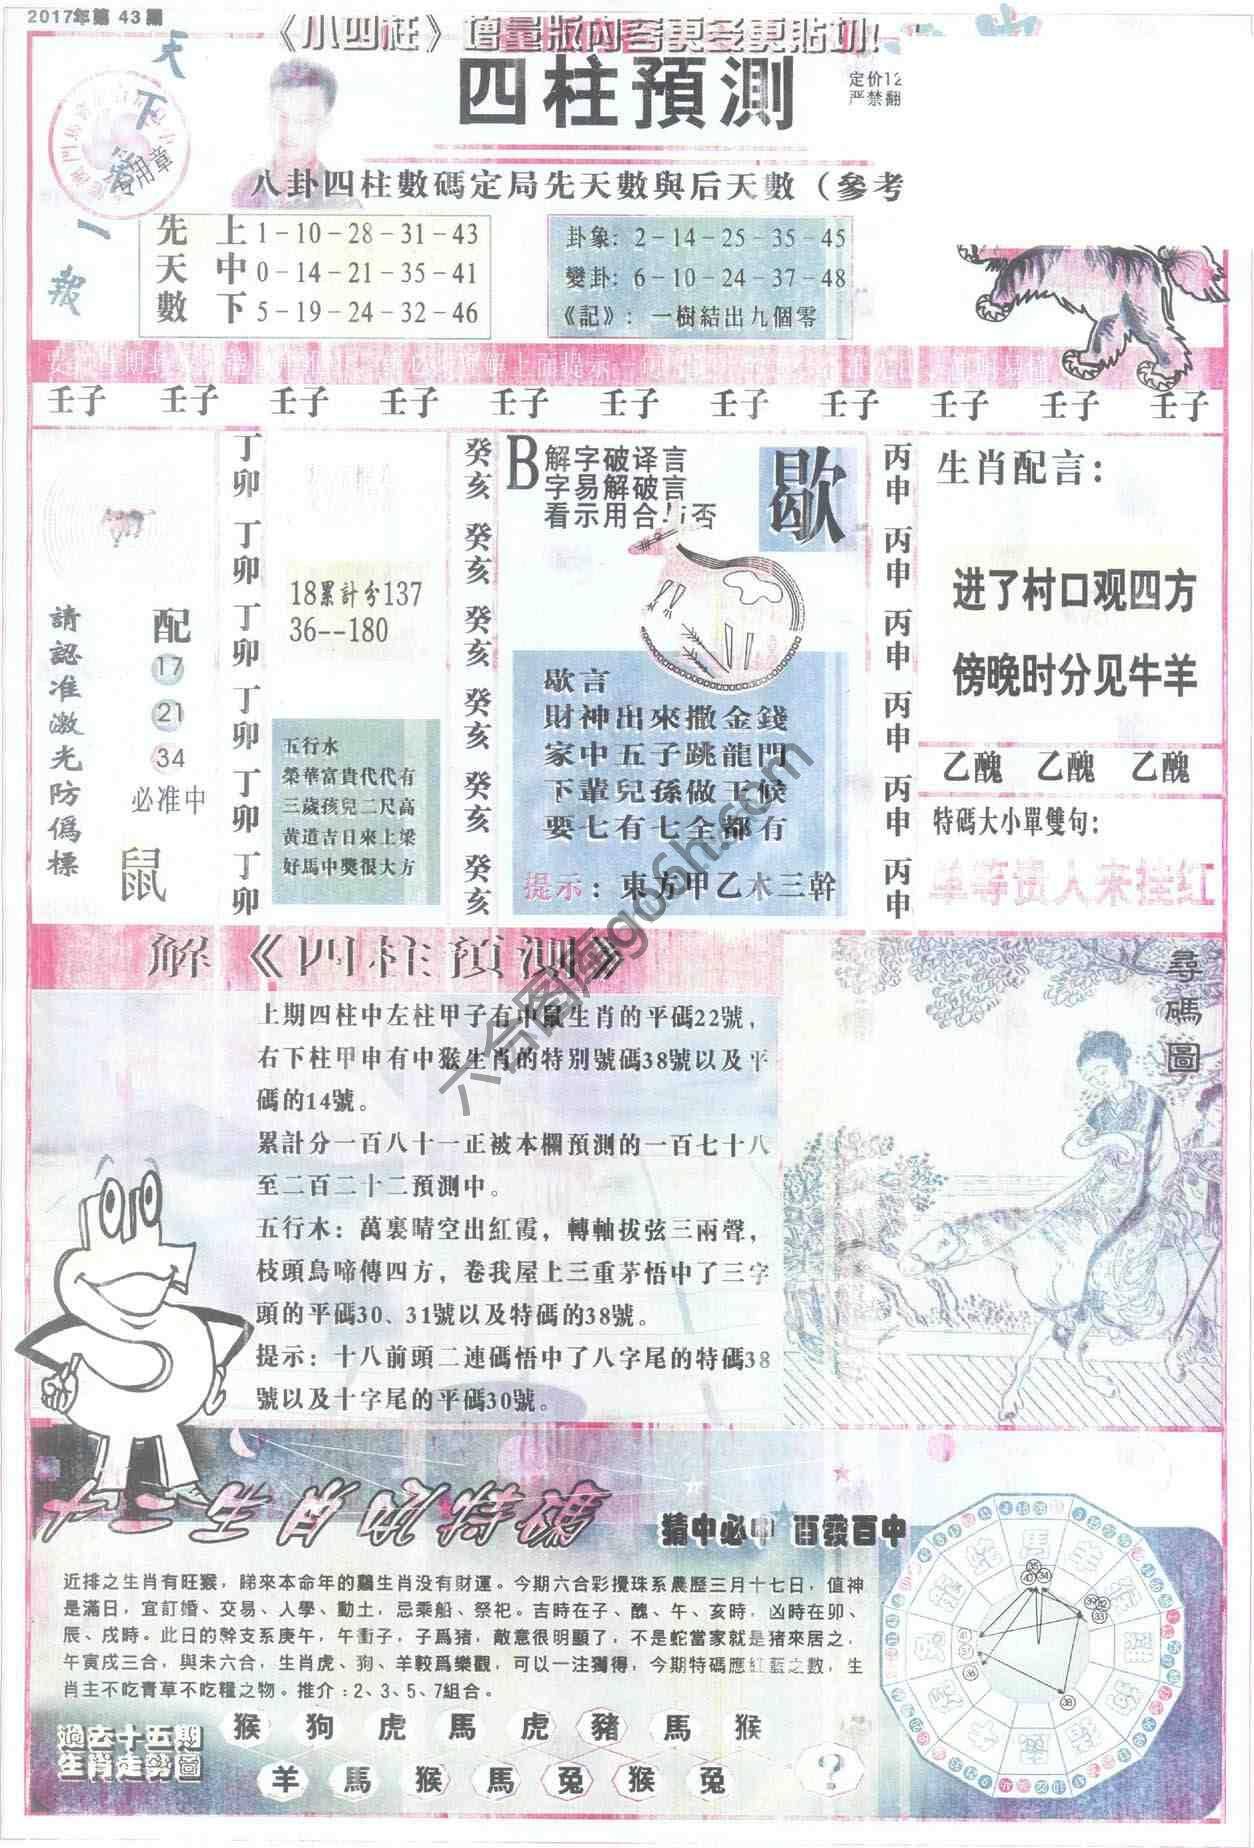 2017年第 43 期
《小四柱》增量版内容更多更貼切
四柱預測
定价12
严禁翻
天下第一報
专用章
八卦四柱數碼定局先天數與后天數（參考
先天數
上 1－10－28－31－43
中 0－14－21－35－41
下 5－19－24－32－46
卦象：2－14－25－35－45
變卦：6－10－24－37－48
《記》：一樹結出九個零
壬子 壬子 壬子 壬子 壬子 壬子 壬子 壬子 壬子 壬子 壬子
請認准激光防僞標
配
17
21
34
必准中
鼠
丁卯 丁卯 丁卯 丁卯 丁卯 丁卯
18累計分137
36--180
五行水
榮華富貴代代有
三歲孩兒二尺高
黄道吉日來上梁
好馬中獎很大方
癸亥 癸亥 癸亥 癸亥 癸亥 癸亥
B
解字破译言
字易解破言
看示用合与否
歇
歇言
財神出來撒金錢
家中五子跳龍門
下輩兒孫做王候
要七有七全都有
提示：東方甲乙木三幹
丙申 丙申 丙申 丙申 丙申 丙申
生肖配言：
进了村口观四方
傍晚时分见牛羊
乙醜 乙醜 乙醜
特碼大小單雙句：
单等贵人来挂红
解《四柱預測》
上期四柱中左柱甲子有中鼠生肖的平碼22號，
右下柱甲申有中猴生肖的特别號碼38號以及平
碼的14號。
累計分一百八十一正被本欄預測的一百七十八
至二百二十二預測中。
五行木：萬裏晴空出紅霞，轉軸拔弦三兩聲，
枝頭鳥啼傳四方，卷我屋上三重茅悟中了三字
頭的平碼30、31號以及特碼的38號。
提示：十八前頭二連碼悟中了八字尾的特碼38
號以及十字尾的平碼30號。
尋碼圖
猜中必中 百發百中
近排之生肖有旺猴，睇來本命年的鷄生肖没有財運。今期六合彩攪珠系農歷三月十七日，值神
是滿日，宜訂婚、交易、人學、動土，忌乘船、祭祀。吉時在子、醜、午、亥時，凶時在卯、
辰、戌時。此日的幹支系庚午，午衝子，子爲猪，敵意很明顯了，不是蛇當家就是猪來居之，
午寅戌三合，與未六合，生肖虎、狗、羊較爲樂觀，可以一注獨得，今期特碼應紅藍之數，生
肖主不吃青草不吃糧之物。推介：2、3、5、7組合。
過去十五期
生肖走勢圖
猴 狗 虎 馬 虎 豬 馬 猴
羊 馬 猴 馬 兔 猴 兔
?
六合图库go6h.com